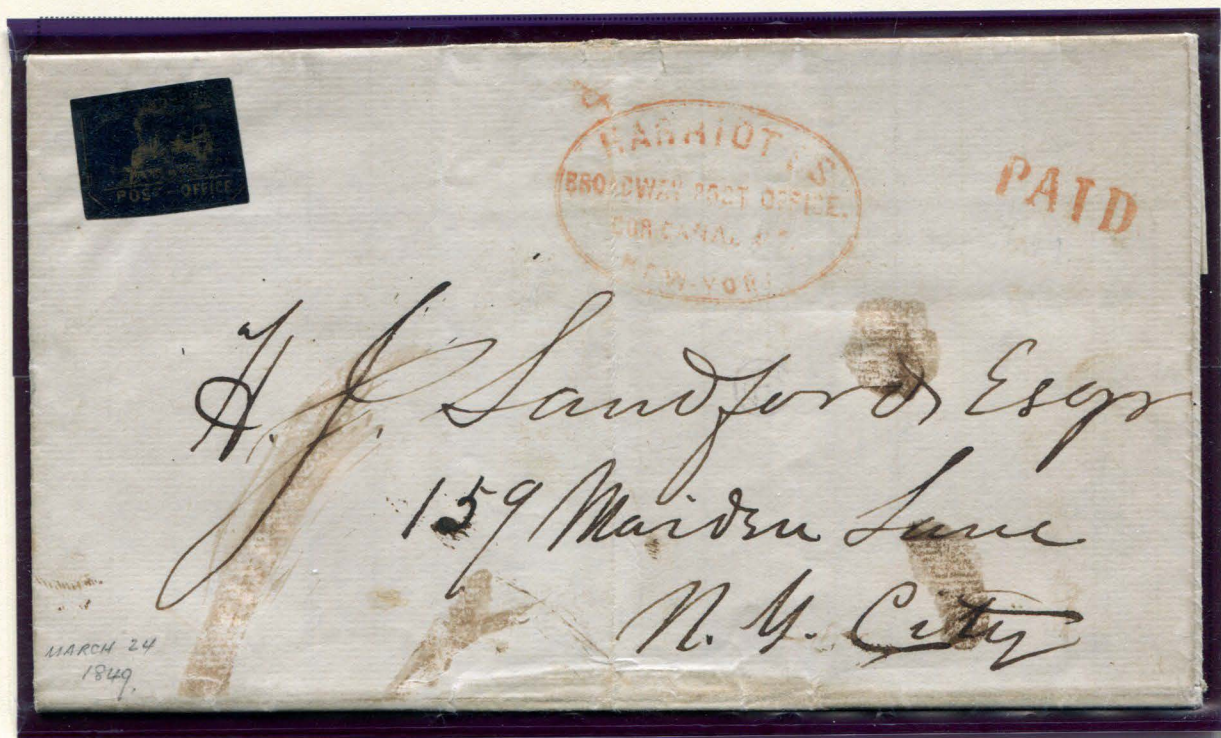 POST OFFICE
HARRIOTT'S
BROADWAY POST OFFICE.
COR CANAL
NEW-YORK
PAID
H. J. Sandford Esqr
159 Maiden Lane
N. Y. City
MARCH 24
1849